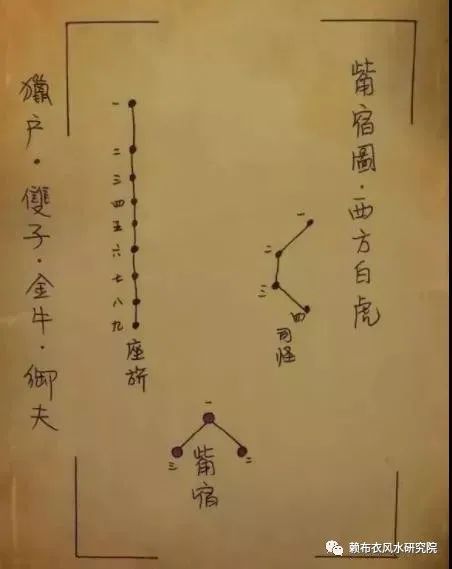 觜宿圖·西方白虎
一
二
三
四
司怪
一
二
三
四
五
六
七
八
九
座旂
一
二
三
觜宿
獵户·雙子·金牛·御夫
赖布衣风水研究院